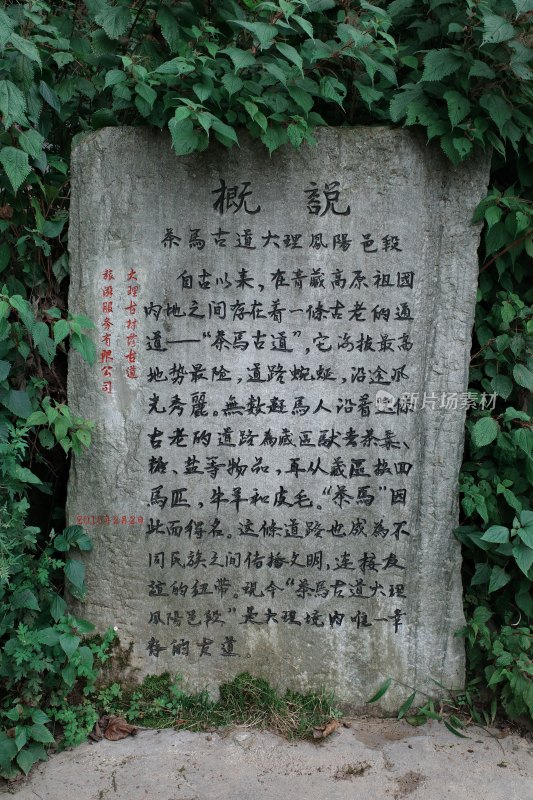 概説
茶馬古道大理鳳陽邑段
自古以来,在青藏高原祖國
内地之间存在着一條古老的通
道——“茶馬古道”,它海拔最高
地势最险,道路蜿蜒,沿途风
光秀麗。無数赶馬人沿着
古老的道路為藏區馱去茶葉、
糖、盐等物品,再从藏區换回
馬匹,牛羊和皮毛。“茶馬”因
此而得名。这條道路也成為不
同民族之间传播文明,連接友
誼的纽带。现今“茶馬古道大理
鳳陽邑段”是大理境内唯一幸
存的古道。
大理古村落古道
旅游服务有限公司